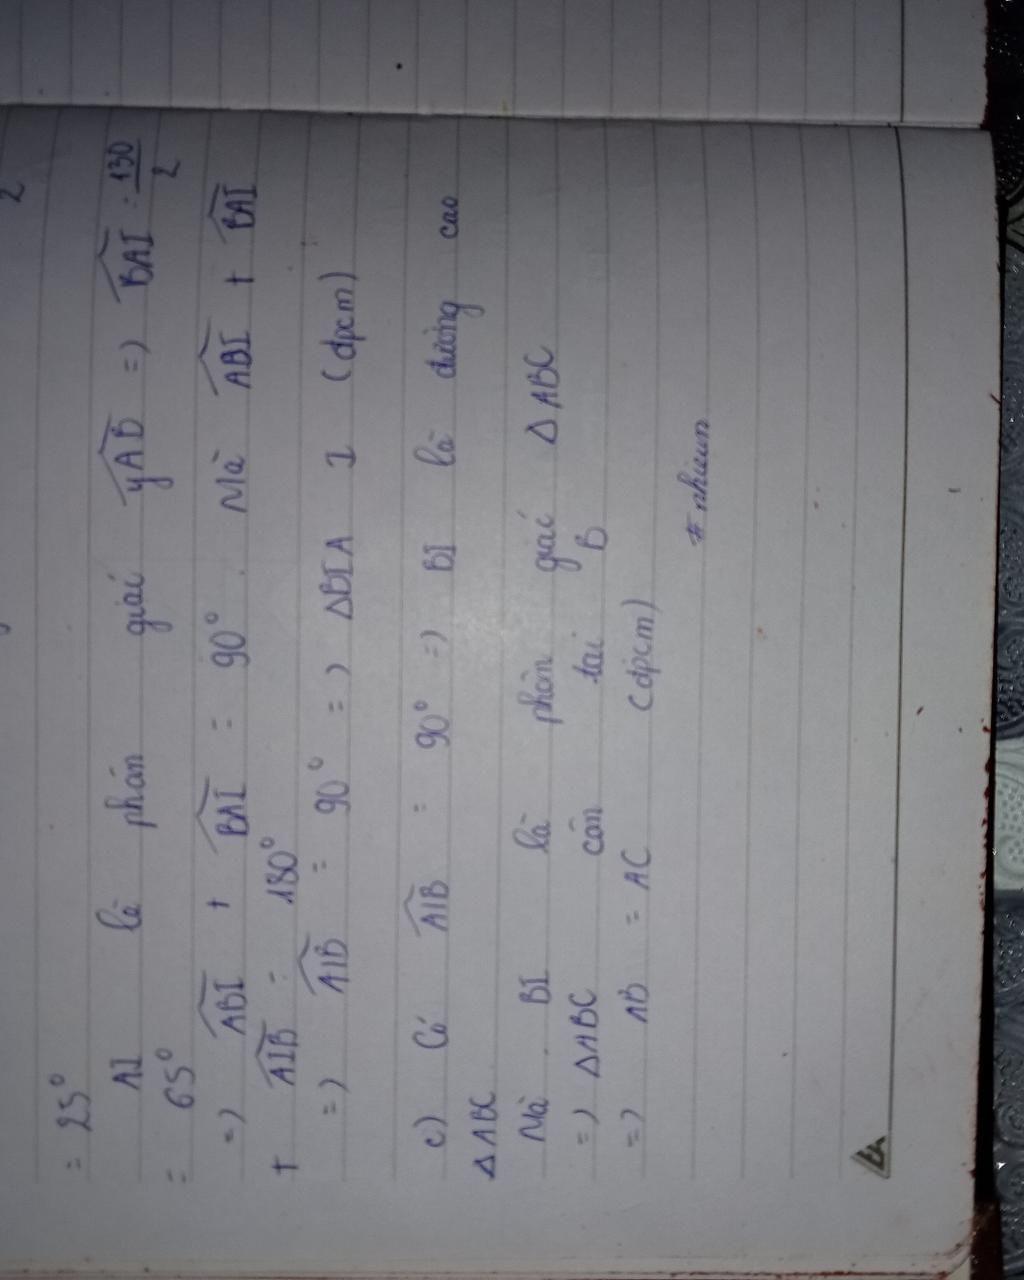 2
= 25°
AI là phán giái yAB =) BAI = 130/2
= 65°
=) ABI + BAI = 90°. Mà ABI + BAI
+ AIB = 180°
=) AIB = 90° =) ΔBIA I (dpcm)
c) Có AIB = 90° =) BI là dường cao
ΔABC
Mà BI là phân giác ΔABC
=) ΔABC cân tai B
=) AB = AC (dpcm)